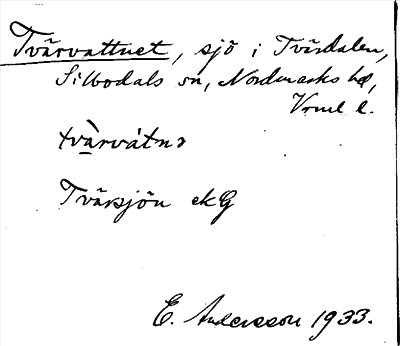 Tvärvattnet, sjö i Tvärdalen,
Silbodals sn, Nordmarks hd,
Vrml l.
tvὰrvátnə
Tvärsjön ekG
E. Andersson 1933.